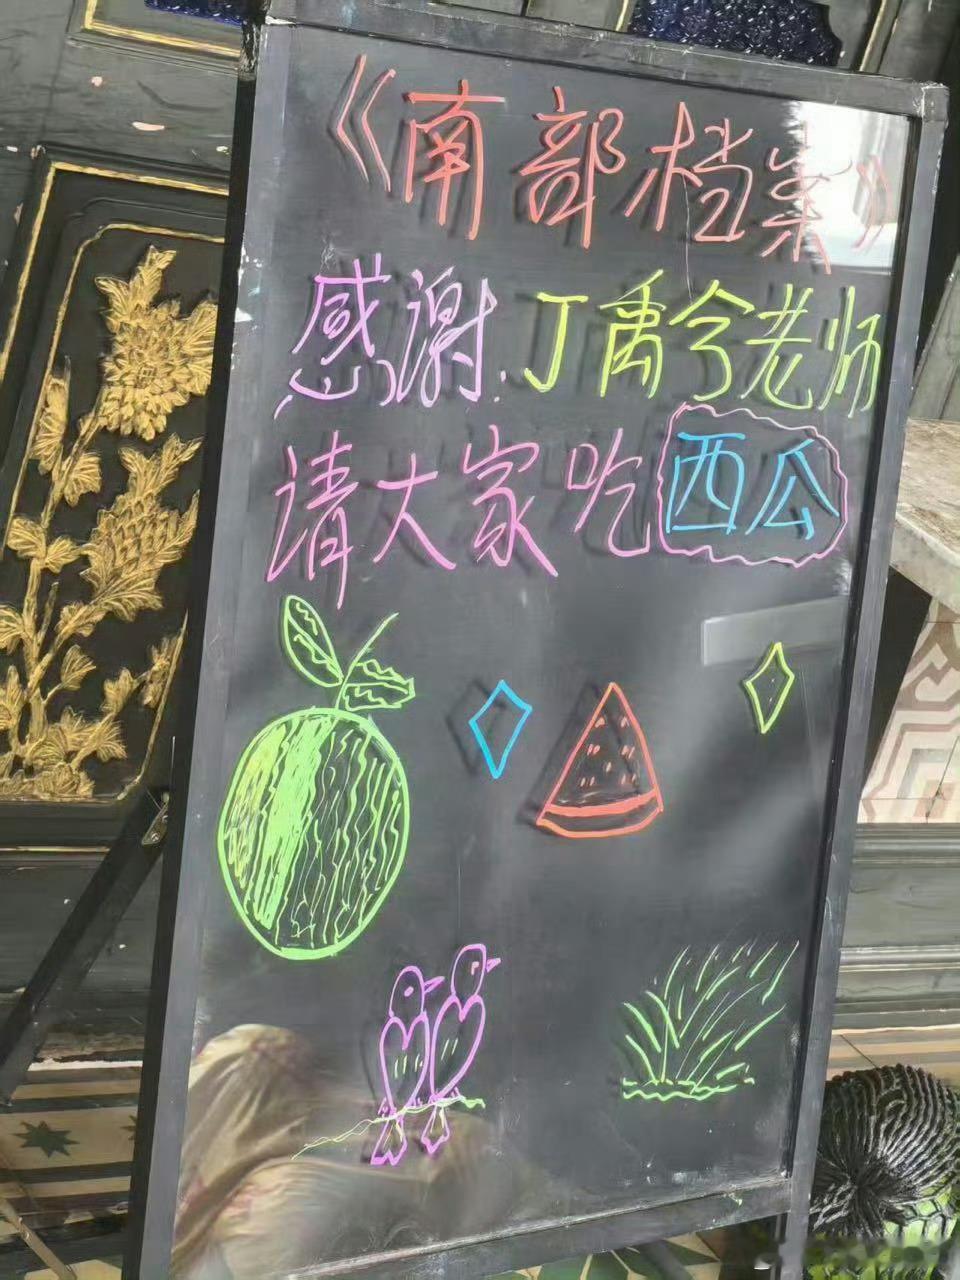 《南部档案》
感谢丁禹兮老师
请大家吃西瓜